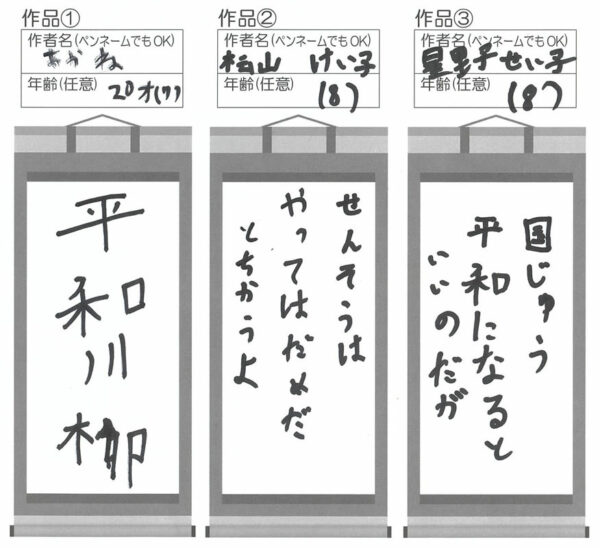 作品①
作者名(ペンネームでもOK)
あかね
年齢(任意)
20才(?)
平和川柳
作品②
作者名(ペンネームでもOK)
松山 けい子
年齢(任意)
(8)
せんそうは
やってはだめだ
とちかうよ
作品③
作者名(ペンネームでもOK)
星野 せい子
年齢(任意)
(8?)
国じゅう
平和になると
いいのだが